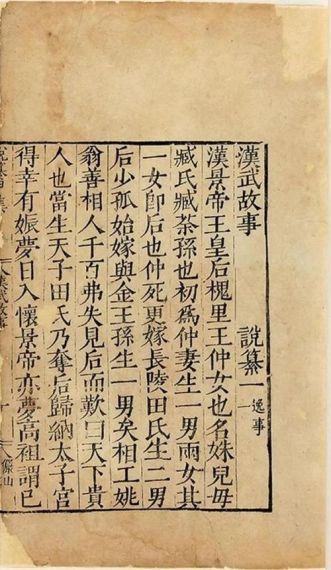 漢武故事 說纂一 逸事
漢景帝王皇后槐里王仲女也名姝兒毋
臧氏臧荼孫也初為仲妻生一男兩女其
一女卽后也仲死更嫁長陵田氏生二男
后少孤始嫁與金王孫生一男矣相工姚
翁善相人千百弗失見后而歎曰天下貴
人也當生天子田氏乃奪后歸納太子宮
得幸有娠夢日入懷景帝亦夢高祖謂己
漢武故事